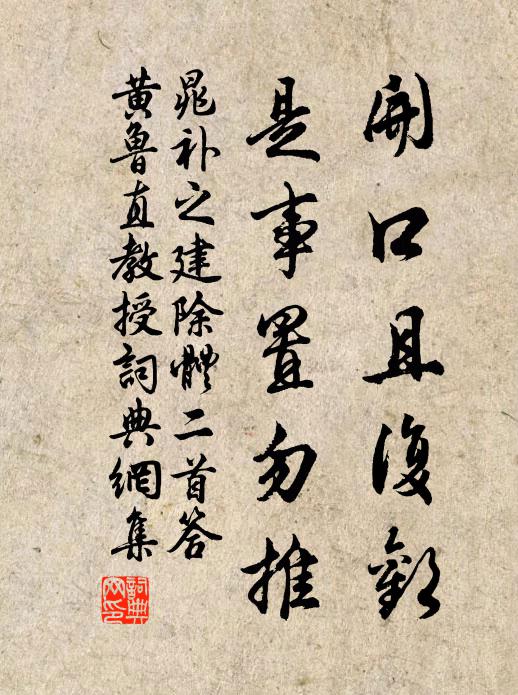 開口且復歡
是事置勿推
晁补之建除體二首答
黄魯直教授詞典網集
詞典
网印